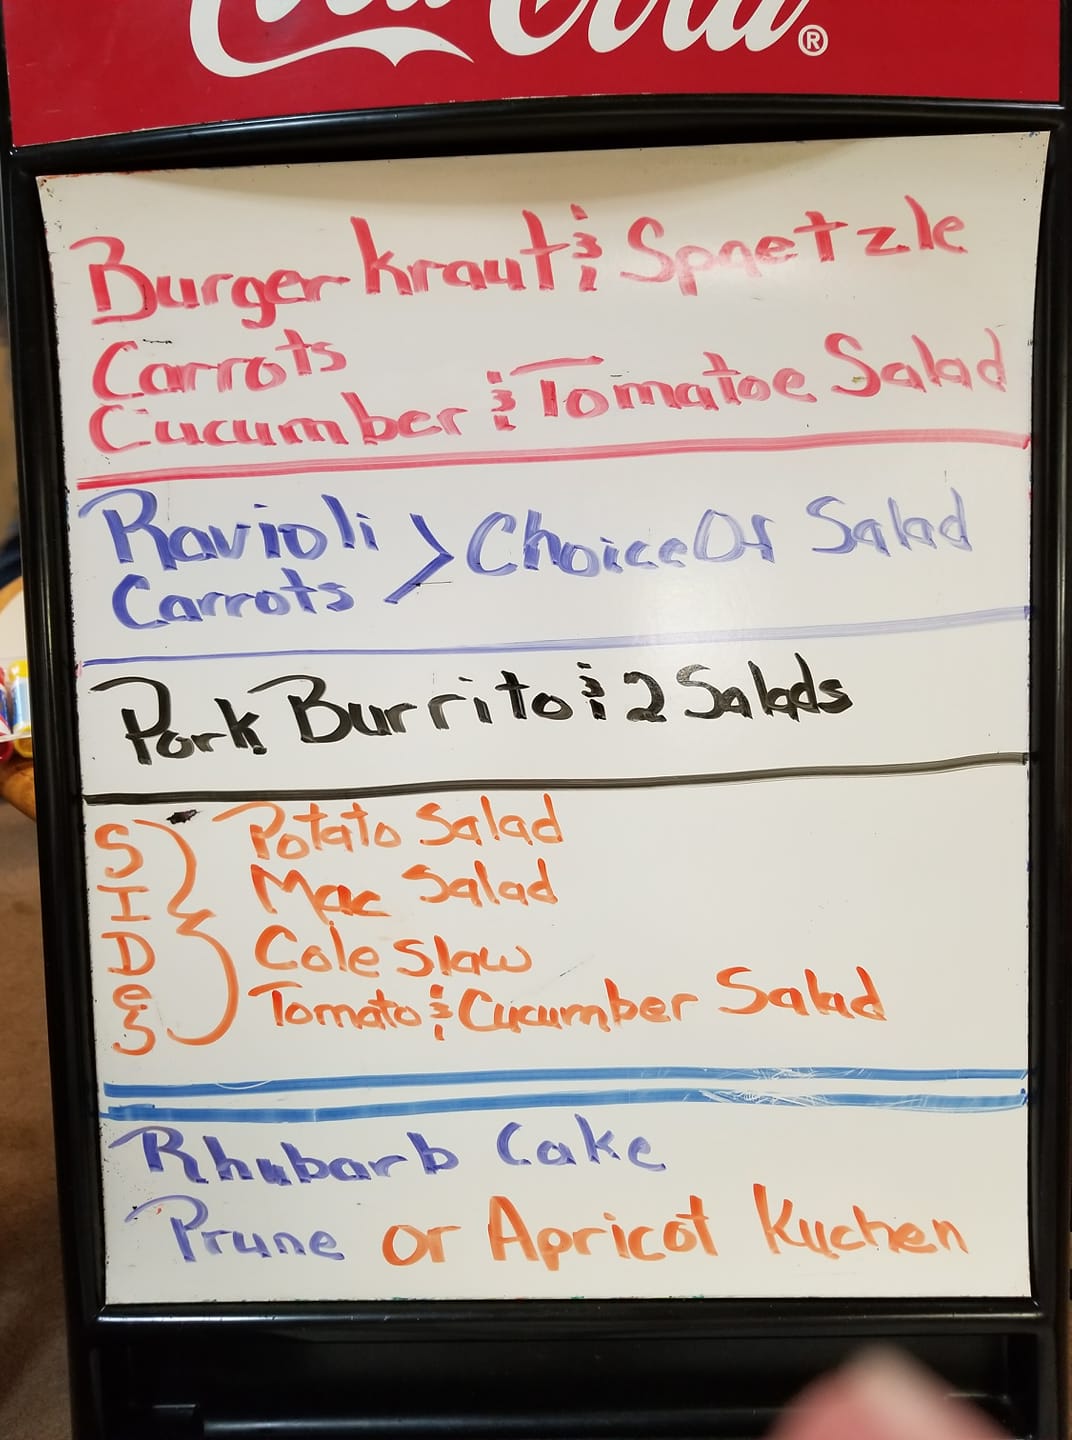 Coca-Cola®
Burger Kraut & Spaetzle
Carrots
Cucumber & Tomatoe Salad
Ravioli > Choice Of Salad
Carrots
Pork Burrito & 2 Salads
SIDeS
Potato Salad
Mac Salad
Cole Slaw
Tomato & Cucumber Salad
Rhubarb Cake
Prune or Apricot Kuchen